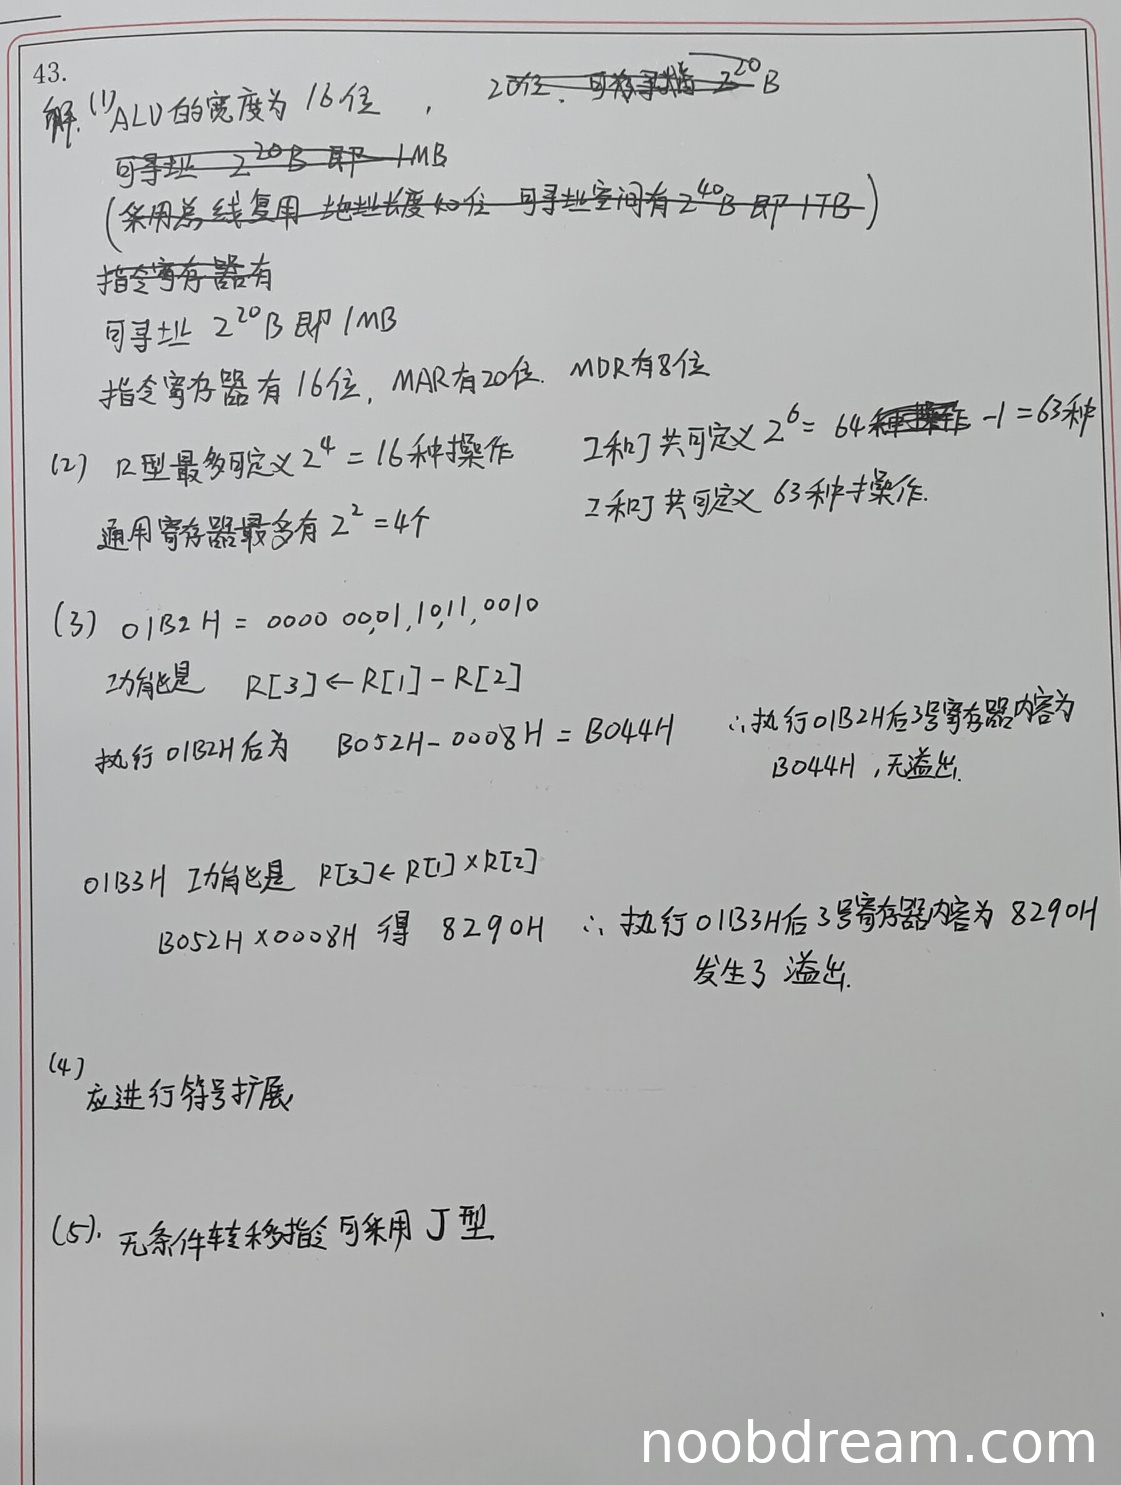 43.
解. (1) ALU的宽度为 16位 , 20位、可存寻址 2^20 B
可寻址 2^20 B 即 1MB
(采用总线复用 地址长度40位 可寻址空间有 2^40 B 即 1TB)
指令寄存器有
可寻址 2^20 B 即 1MB
指令寄存器有 16位, MAR有20位. MDR有8位
(2) R型最多可定义 2^4 = 16种操作 I和J共可定义 2^6 = 64种操作 -1 = 63种
通用寄存器最多有 2^2 = 4个 I和J共可定义 63种操作.
(3) 01B2H = 0000 00,01,10,11,0010
功能是 R[3] ← R[1] - R[2]
执行01B2H后为 B052H - 0008H = B044H ∴执行01B2H后3号寄存器内容为
B044H ,无溢出.
01B3H 功能是 R[3] ← R[1] × R[2]
B052H × 0008H 得 8290H ∴执行01B3H后3号寄存器内容为 8290H
发生了溢出.
(4)
应进行符号扩展
(5). 无条件转移指令可采用 J型
noobdream.com